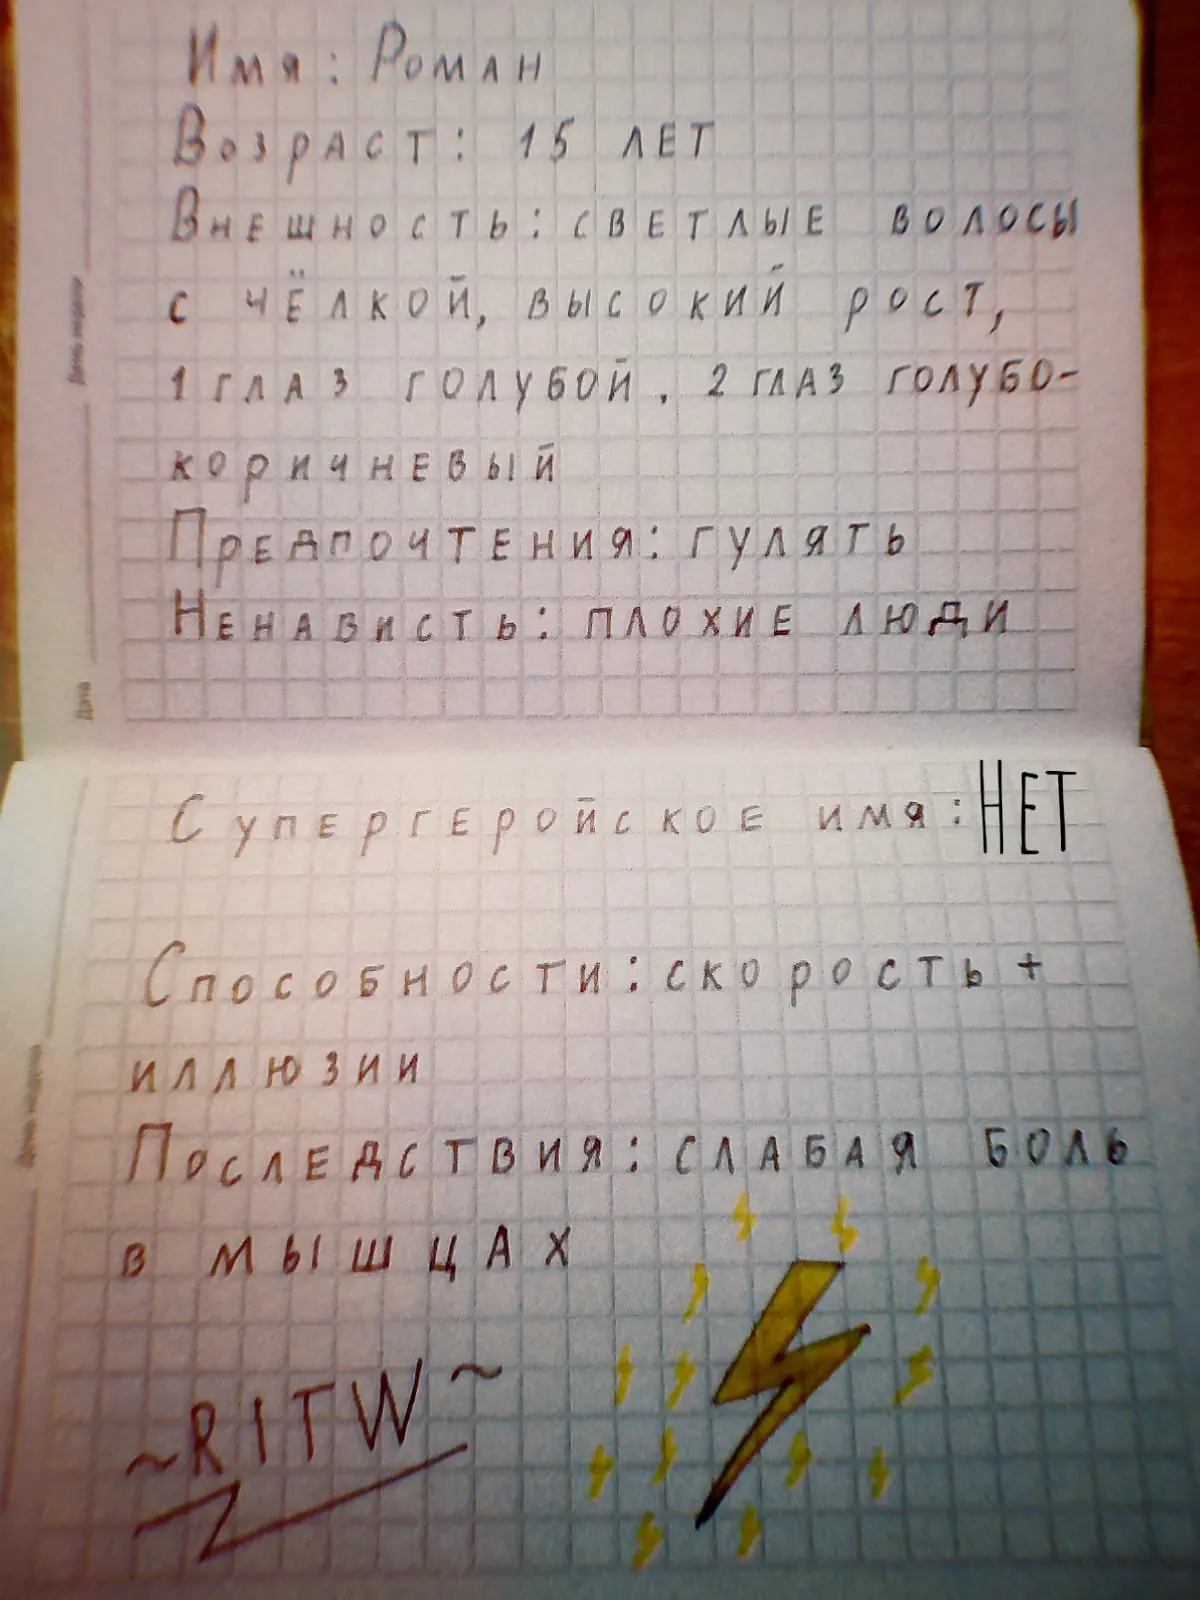 Имя: Роман
Возраст: 15 лет
Внешность: светлые волосы
с чёлкой, высокий рост,
1 глаз голубой. 2 глаз голубо-
коричневый
Предпочтения: гулять
Ненависть: плохие люди
День недели
Дата
Супергеройское имя: НЕТ
Способности: скорость +
иллюзии
Последствия: слабая боль
в мышцах
День недели
~RITW~